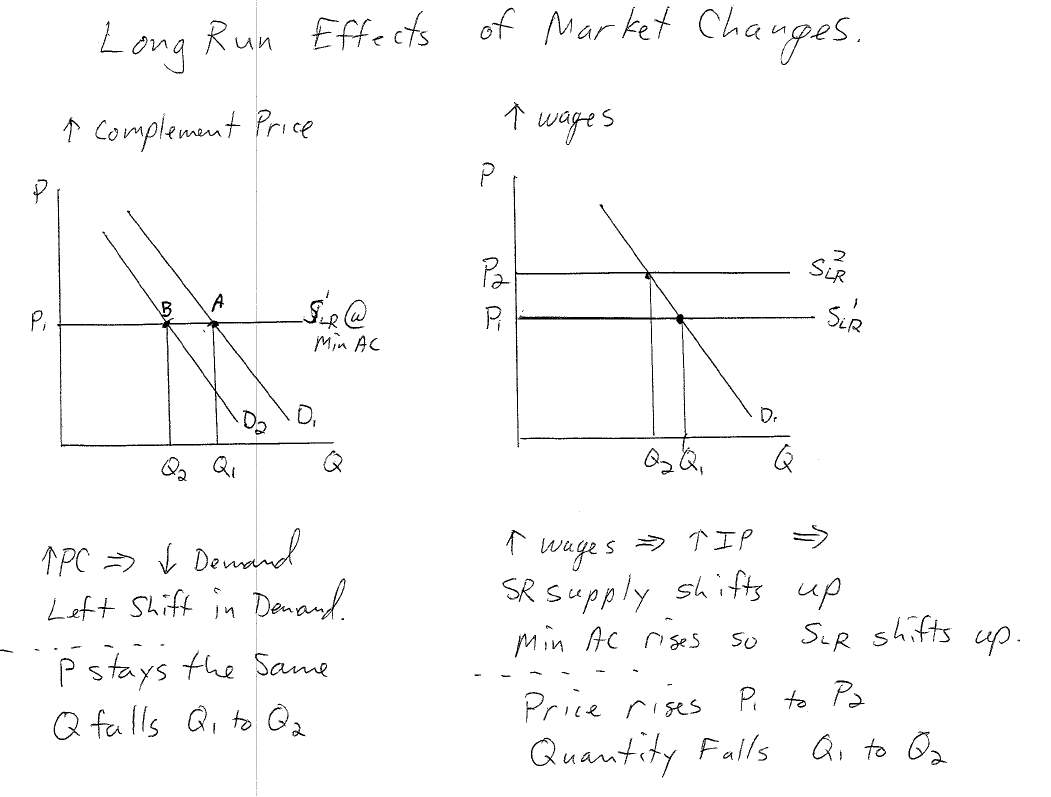 Long Run Effects of Market Changes.
↑ Complement Price
P
B A
P₁
S¹LR @
Min AC
D₂ D₁
Q₂ Q₁ Q
↑PC ⇒ ↓ Demand
Left Shift in Demand.
P stays the Same
Q falls Q₁ to Q₂
↑ wages
P
P₂
S²LR
P₁
S¹LR
D₁
Q₂ Q₁ Q
↑ wages ⇒ ↑ IP ⇒
SR supply shifts up
Min AC rises so SLR shifts up.
Price rises P₁ to P₂
Quantity Falls Q₁ to Q₂